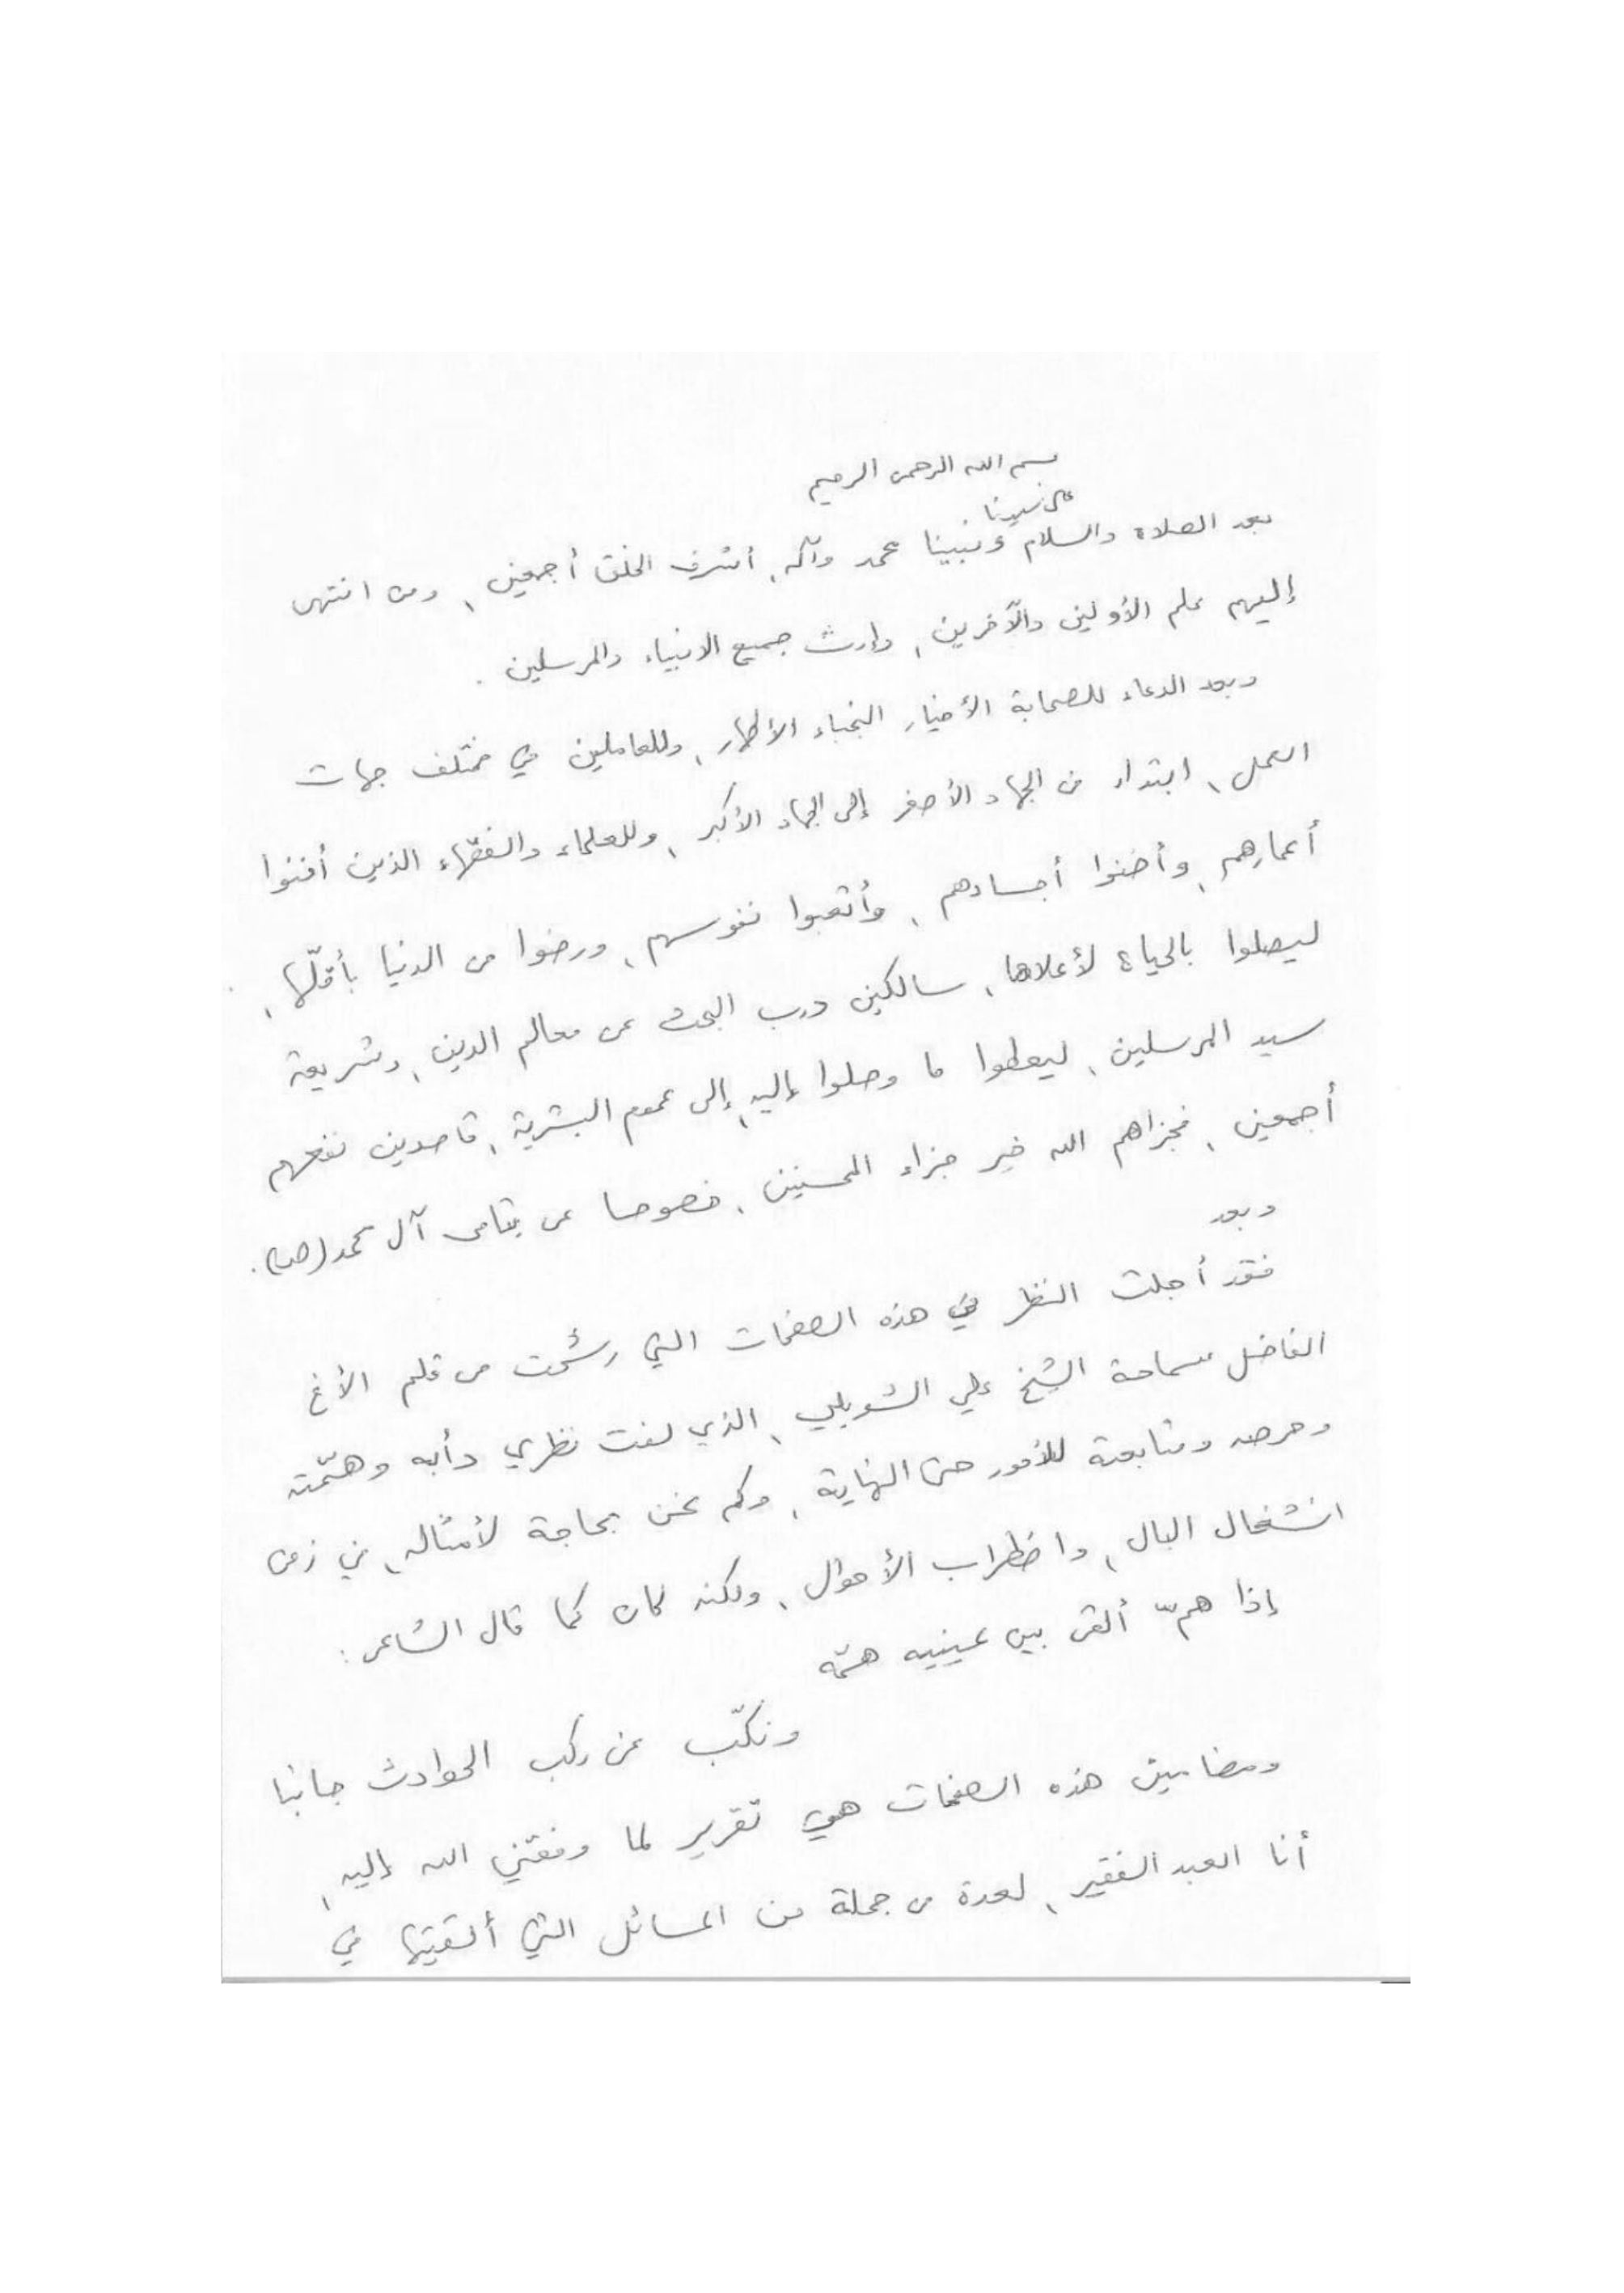 بسم الله الرحمن الرحيم
على سيدنا
بعد الصلاة والسلام ونبينا محمد وآله، أشرف الخلق أجمعين، ومن انتهى
إليهم علم الأولين والآخرين، وارث جميع الانبياء والمرسلين.
وبعد الدعاء للصحابة الأخيار النجباء الأطهار، وللعاملين في مختلف جهات
العمل، ابتداء من الجهاد الأصغر إلى الجهاد الأكبر، وللعلماء والفقهاء الذين أفنوا
أعمارهم، وأضنوا أجسادهم، وأتعبوا نفوسهم، ورضوا من الدنيا بأقلّها،
ليصلوا بالحياة لأعلاها، سالكين درب البحث عن معالم الدين، وشريعة
سيد المرسلين، ليعطوا ما وصلوا إليه، إلى عموم البشرية، قاصدين نفعهم
أجمعين، فجزاهم الله خير جزاء المحسنين، خصوصا عن يتامى آل محمد (ص).
وبعد
فقد أجلت النظر في هذه الصفحات التي رشحت من قلم الأخ
الفاضل سماحة الشيخ علي الشويلي، الذي لفت نظري دأبه وهمّته
وحرصه ومتابعته للأمور حتى النهاية، وكم نحن بحاجة لأمثاله، في زمن
انشغال البال، واضطراب الأحوال، ولكنه كان كما قال الشاعر:
إذا همّ ألقى بين عينيه همّه
ونكّب عن ركب الحوادث جانبا
ومضامين هذه الصفحات هي تقرير لما وفقني الله إليه،
أنا العبد الفقير، لعدة من جملة من المسائل التي ألقيتها في